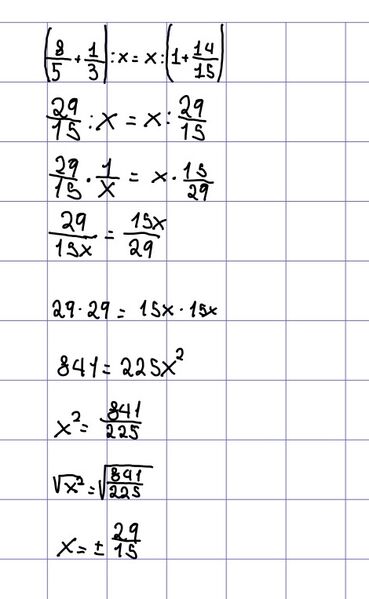 (8/5 + 1/3) : x = x : (1 + 14/15)
29/15 : x = x : 29/15
29/15 · 1/x = x · 15/29
29/15x = 15x/29
29 · 29 = 15x · 15x
841 = 225x²
x² = 841/225
√x² = √841/225
x = ± 29/15